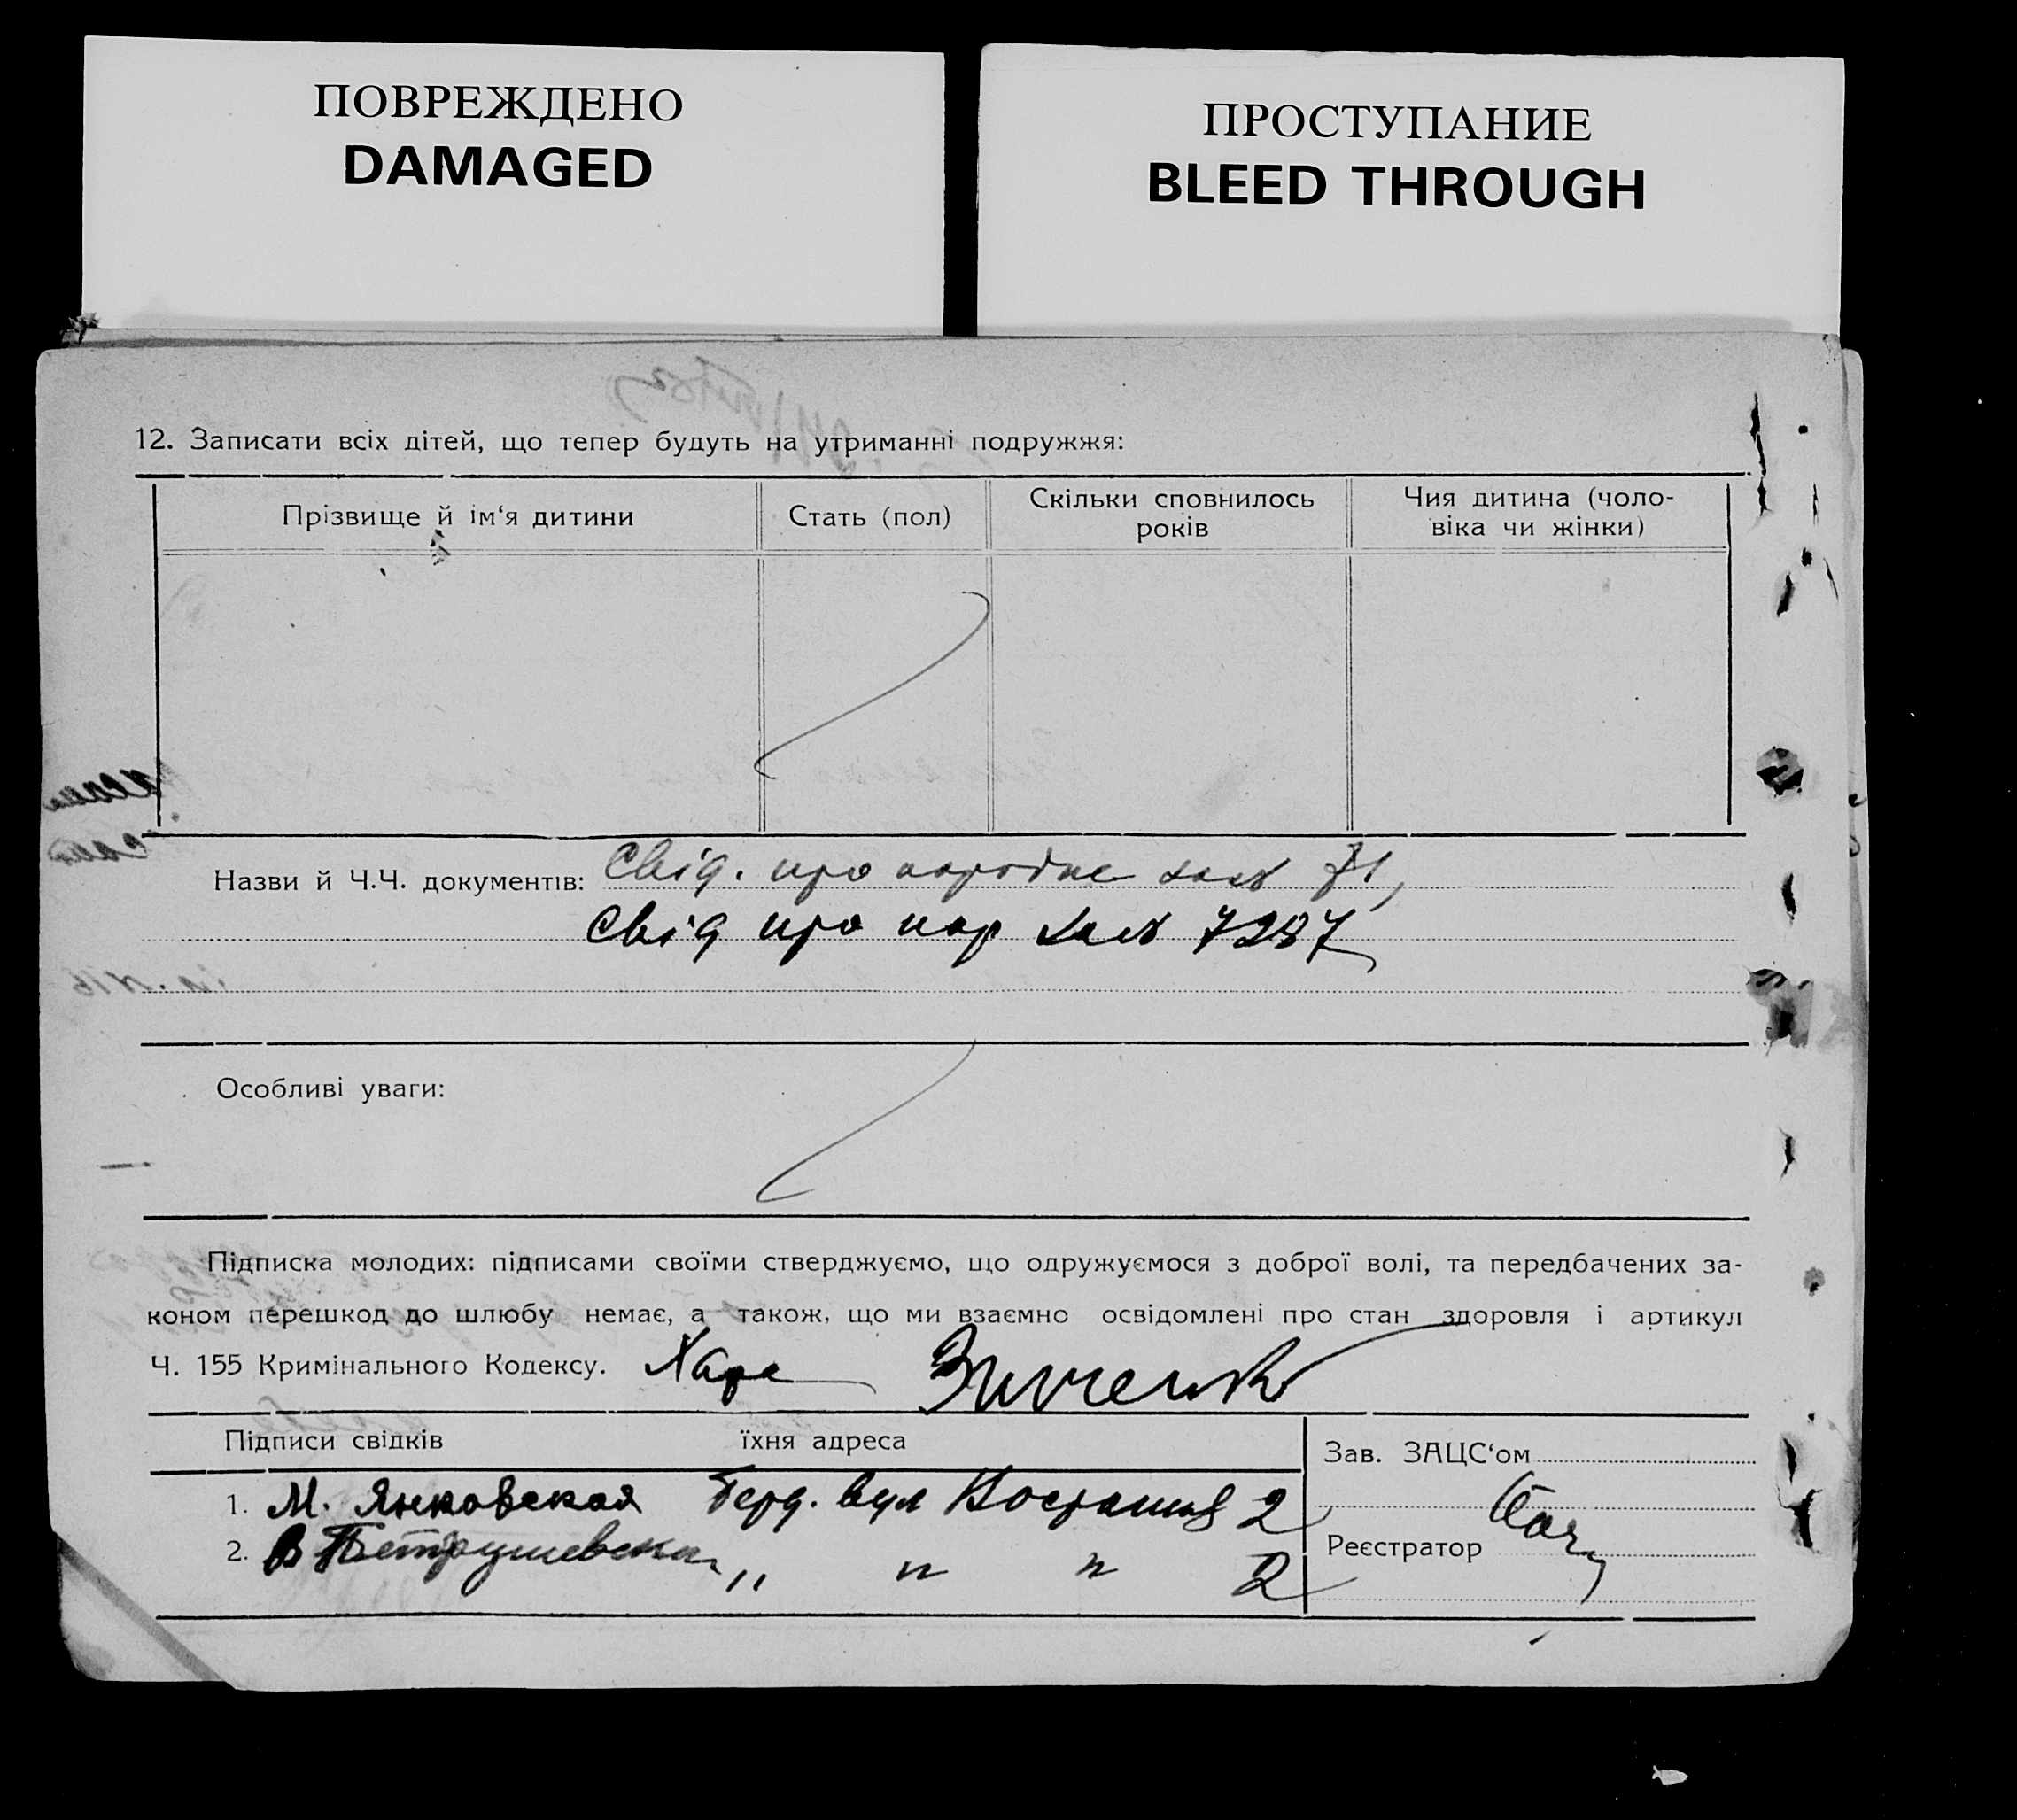 ПОВРЕЖДЕНО
DAMAGED
ПРОСТУПАНИЕ
BLEED THROUGH
12. Записати всіх дітей, що тепер будуть на утриманні подружжя:
Прізвище й ім‘я дитини
Стать (пол)
Скільки сповнилось
років
Чия дитина (чоло-
віка чи жінки)
Назви й Ч.Ч. документів: Свід. про народже за № 71,
Свід про нар за № 7287
Особливі уваги:
Підписка молодих: підписами своїми стверджуємо, що одружуємося з доброї волі, та передбачених за-
коном перешкод до шлюбу немає, а також, що ми взаємно освідомлені про стан здоровля і артикул
Ч. 155 Кримінального Кодексу.
Підписи свідків їхня адреса
1. М. Янковская вул 2
2. В Петрушевски " " " 2
Зав. ЗАЦС‘ом
Реєстратор